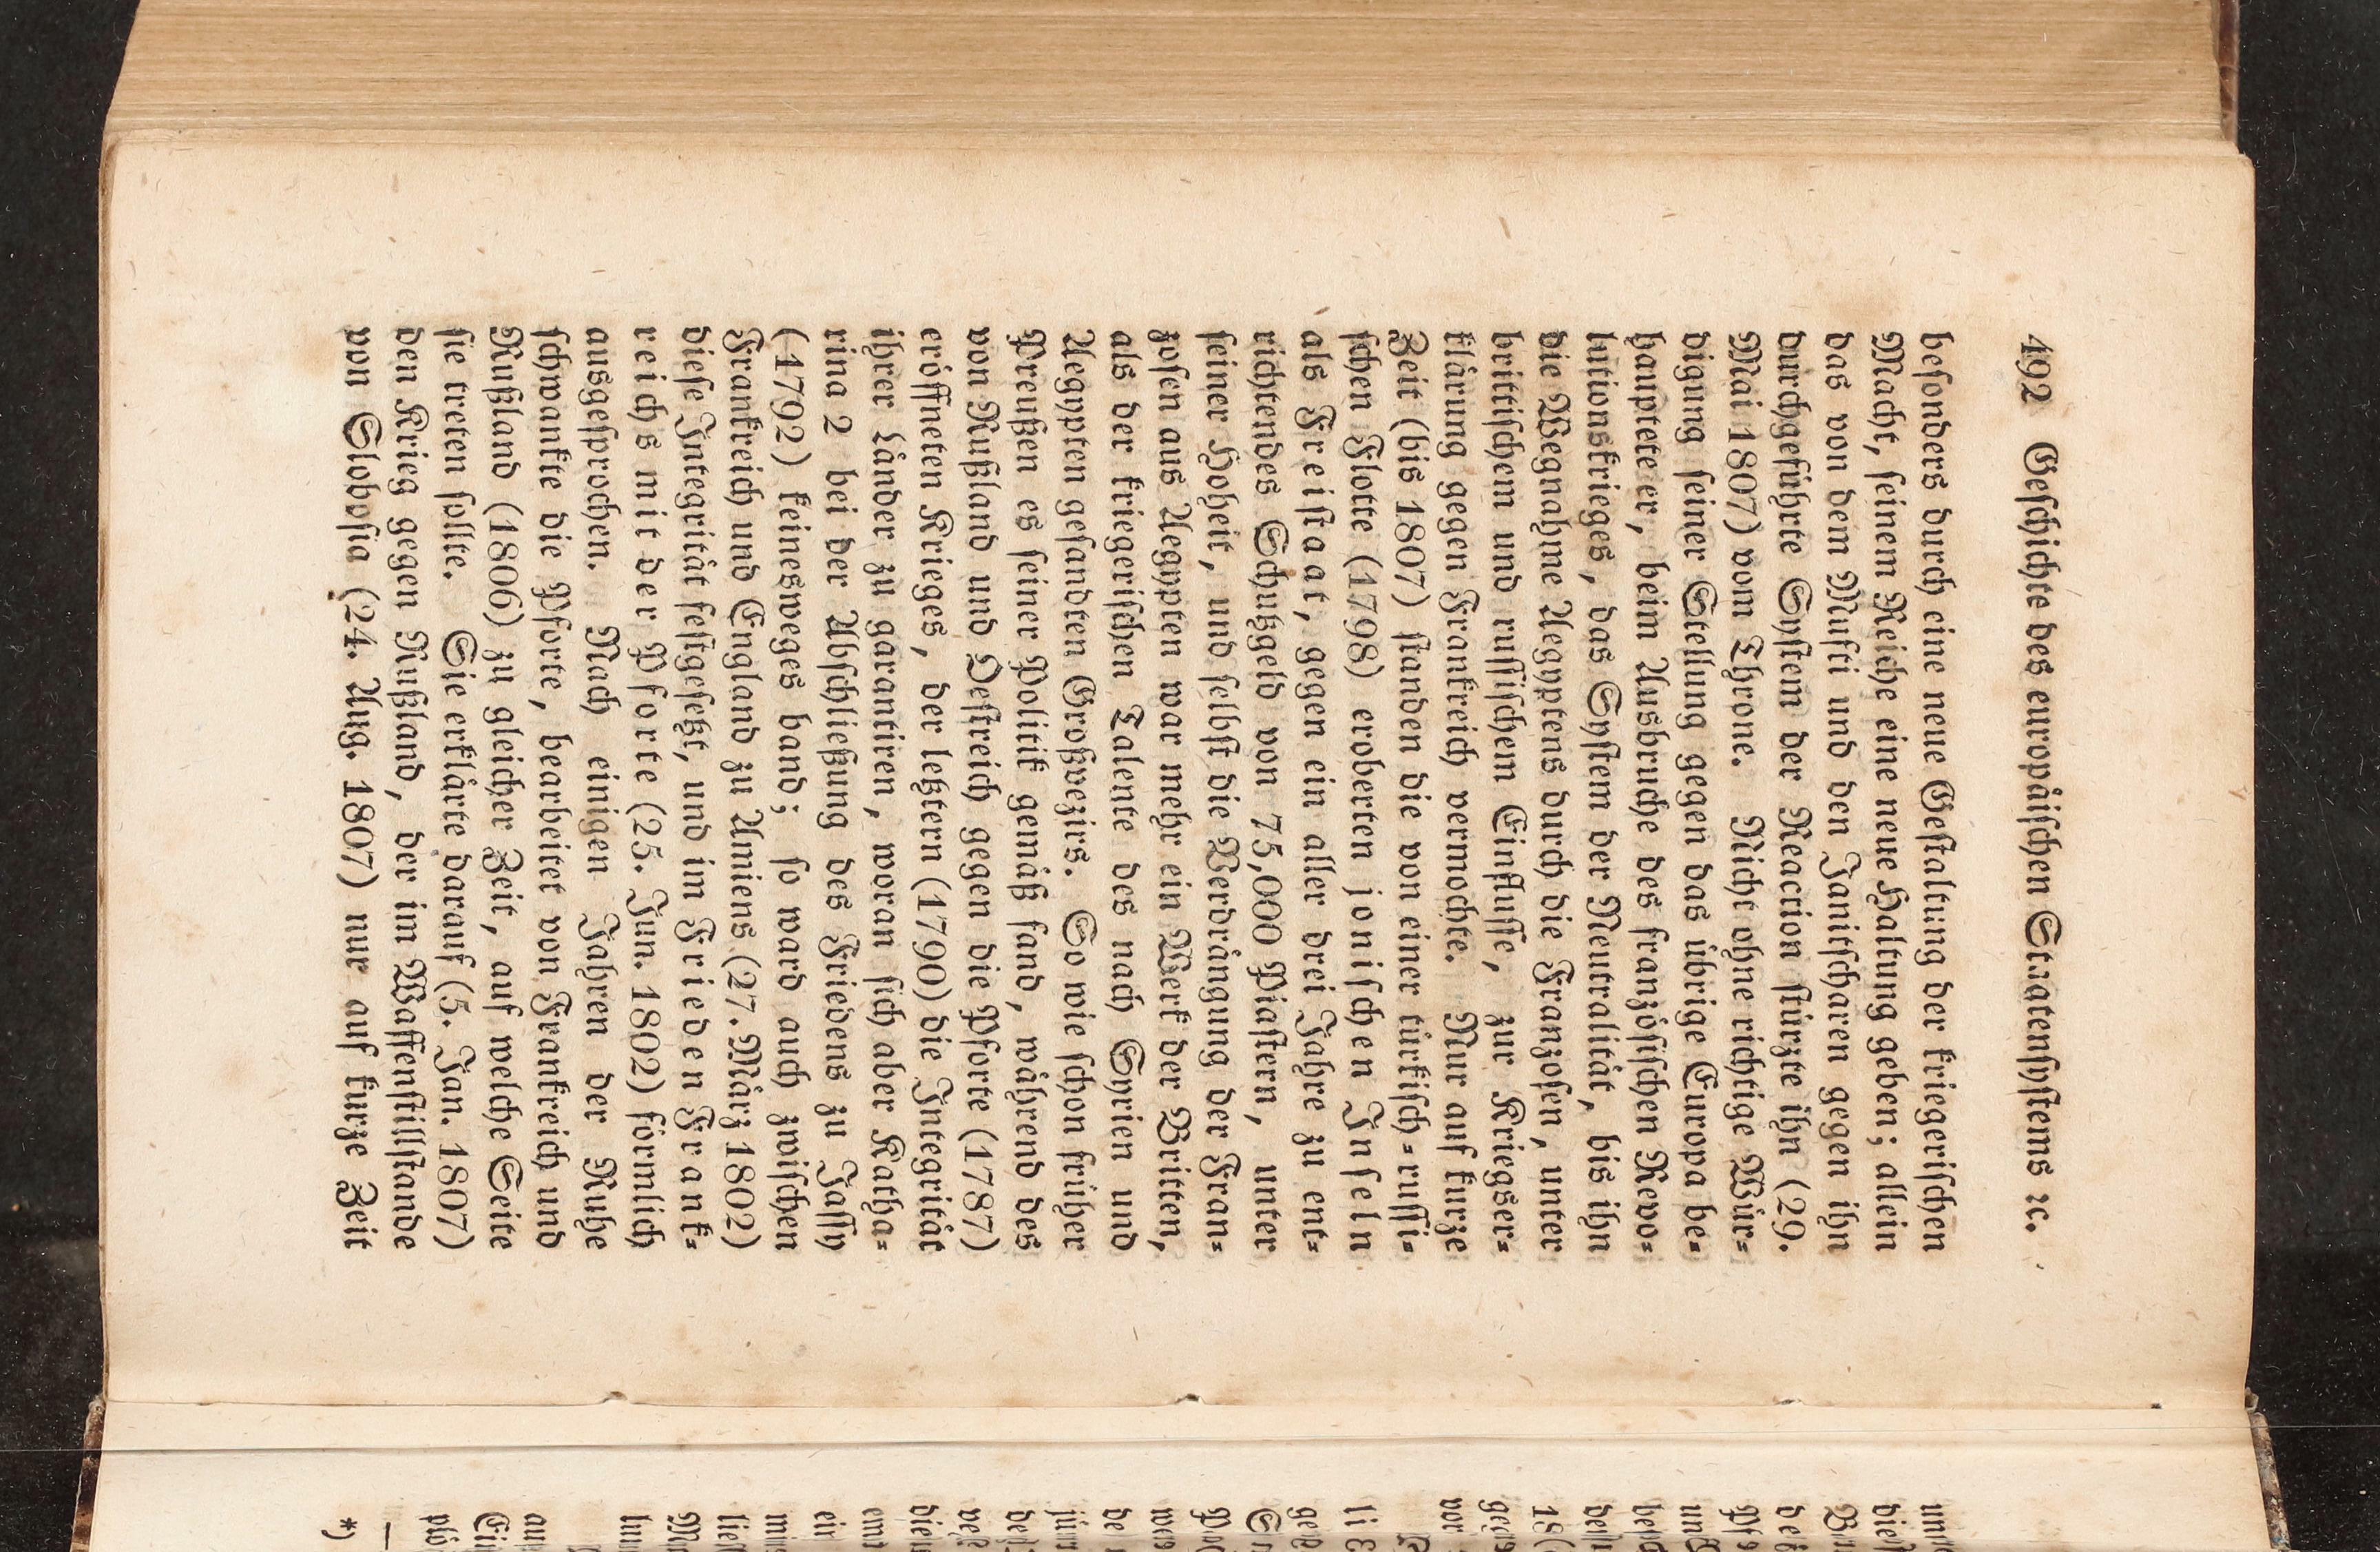 492 Geschichte des europäischen Staatensystems ꝛc.
besonders durch eine neue Gestaltung der kriegerischen
Macht, seinem Reiche eine neue Haltung geben; allein
das von dem Mufti und den Janitscharen gegen ihn
durchgeführte System der Reaction stürzte ihn (29.
Mai 1807) vom Throne. Nicht ohne richtige Wür-
digung seiner Stellung gegen das übrige Europa be-
hauptete er, beim Ausbruche des französischen Revo-
lutionskrieges, das System der Neutralität, bis ihn
die Wegnahme Aegyptens durch die Franzosen, unter
brittischem und russischem Einflusse, zur Kriegser-
klärung gegen Frankreich vermochte. Nur auf kurze
Zeit (bis 1807) standen die von einer türkisch-russi-
schen Flotte (1798) eroberten jonischen Inseln
als Freistaat, gegen ein aller drei Jahre zu ent-
richtendes Schutzgeld von 75,000 Piastern, unter
seiner Hoheit, und selbst die Verdrängung der Fran-
zosen aus Aegypten war mehr ein Werk der Britten,
als der kriegerischen Talente des nach Syrien und
Aegypten gesandten Großvezirs. So wie schon früher
Preußen es seiner Politik gemäß fand, während des
von Rußland und Oestreich gegen die Pforte (1787)
eröffneten Krieges, der letztern (1790) die Integrität
ihrer Länder zu garantiren, woran sich aber Katha-
rina 2 bei der Abschließung des Friedens zu Jassy
(1792) keinesweges band; so ward auch zwischen
Frankreich und England zu Amiens (27. März 1802)
diese Integrität festgesetzt, und im Frieden Frank-
reichs mit der Pforte (25. Jun. 1802) förmlich
ausgesprochen. Nach einigen Jahren der Ruhe
schwankte die Pforte, bearbeitet von Frankreich und
Rußland (1806) zu gleicher Zeit, auf welche Seite
sie treten sollte. Sie erklärte darauf (5. Jan. 1807)
den Krieg gegen Rußland, der im Waffenstillstande
von Slobosia (24. Aug. 1807) nur auf kurze Zeit